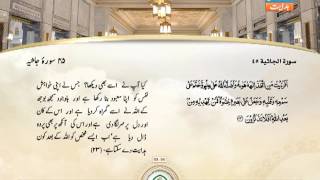 ہدایت
۲۵ سورۂ جاثیہ
سورة الجاثية ٤٥
أفرءيت من اتخذ إلهه هوىه وأضله الله على علم وختم على
سمعه وقلبه وجعل على بصره غشوة فمن يهديه من
بعد الله أفلا تذكرون
کیا آپ نے اسے بھی دیکھا؟ جس نے اپنی خواہش
نفس کو اپنا معبود بنا رکھا ہے اور باوجود سمجھ بوجھ
کے اللہ نے اسے گمراہ کردیا ہے اور اس کے کان
اور دل پر مہر لگادی ہے اور اس کی آنکھ پر بھی پردہ
ڈال دیا ہے اب ایسے شخص کو اللہ کے بعد کون
ہدایت دے سکتا ہے، (۲۳)